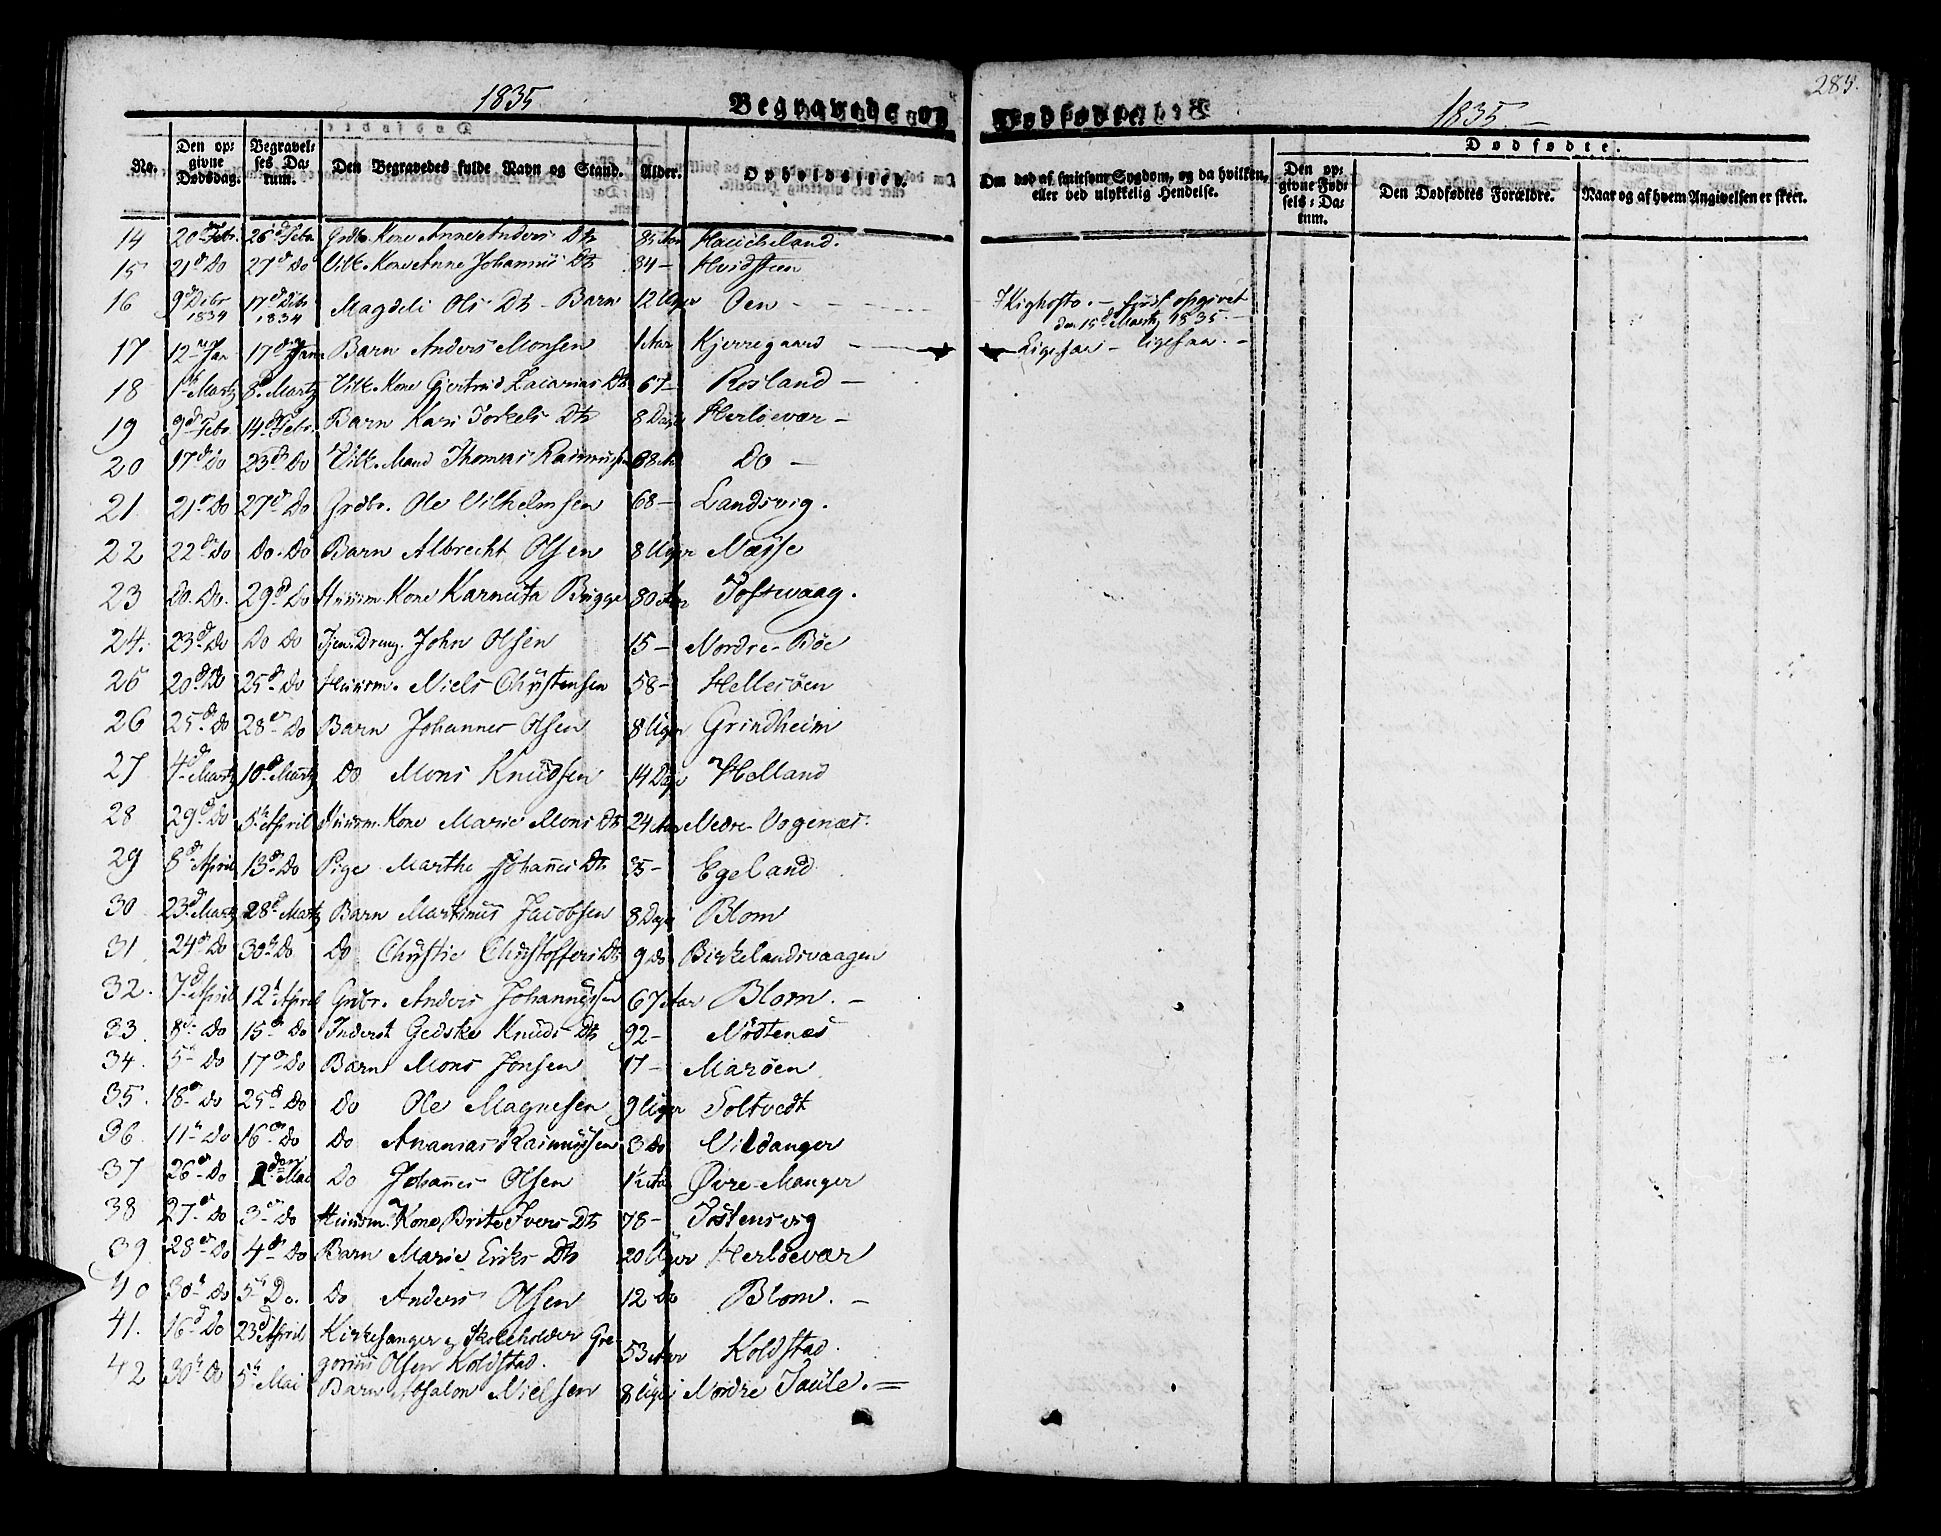 1835
Begravede og
Dødfødte
1835.
285.
No.
Den opgivne Dødsdag.
Begravelses Datum.
Den Begravedes fulde Navn og Stand.
Alder.
Opholdssted.
Om død af smitsom Sygdom, og da hvilken, eller ved ulykkelig Hendelse.
Dødfødte.
Den opgivne Fødsels-Datum.
Den Dødfødtes Forældre.
Naar og af hvem Angivelsen er skeet.
14 20d Febr. 26d Febr. Grdbr. Kone Anne Anders Dtr 85 Aar
15 21d Do 27d Do Vilk. Kone Anne Johannis Dtr 34 - Hvidsteen
16 9d Debr 1834 17d Debr 1834 Magdeli Ols Dtr - Barn 12 Uger Oen - Kighoste. - først opgivet
den 15d Martz 1835. -
17 12 Jan 17d Jan Barn Anders Monsen 1 Aar Kjerregaard - Ligesaa - ligesaa. -
18 1 Martz 8d Martz Vilk. Kone Gjertrud Zacarias Dtr 67 - Rosland -
19 9d Febr. 14d Febr. Barn Kari Torkels Dtr 8 Dage Herløevær -
20 17d Do 23d Do Vilk. Mand Thomas Rasmussen 68 Aar Do -
21 21 Do 27d Do Grdbr. Ole Vilhelmsen 68 - Landsvig.
22 22d Do Do. Do Barn Albrecht Olsen 8 Uger Næsse
23 Do. Do. 29d Do Huusm. Kone Karneita Brigge 80 Aar Toftevaag.
24. 23d Do Do Do Tjen. Dreng. John Olsen 15 - Nordre-Bøe
25 20d Do 25d Do Huusm. Niels Christensen 58 - Hellesøen
26 25d Do 28 Do Barn Johannes Olsen 8 Uger Grindheim
27 4d Martz 10d Martz Do Mons Knudsen 14 Dage Helland
28 29d Do 5 April Huusm. Kone Marie Mons Dtr 24 Aar Nedre-Vogenæs.
29 8d April 13d Do Pige Marthe Johannes Dtr 35 - Egeland
30 23d Martz 28d Martz Barn Martinus Jacobsen 8 Dage Blom
31. 24d Do 30 Do Do Christie Christoffers Dtr 9 Do Birkelandsvaagen
32. 7d April 12 April Grdbr. Anders Johannessen 67 Aar Blom. -
33. 8d Do 15d Do Inderst Gedske Knuds Dtr 92 - Nødtenæs
34. 5 Do 17d Do Barn Mons Jonsen 17 - Marøen
35. 18d Do 25d Do Do Ole Magnesen 9 Uger Toltvedt
36. 11 Do 16d Do Do Ananias Rasmussen 3 Do Vildanger
37 26d Do 1den Mai Do Johannes Olsen 1½ Aar Øvre-Manger
38 27d Do 3d Do Huusm. Kone Brite Ivers Dtr 78 - Tostensvig
39. 28d Do 4d Do Barn Marie Eriks Dtr 20 Uger Herløevær
40 30 Do 5 Do. Do Anders Olsen 12 Do Blom. -
41. 16d Do 23d April Kirkesanger og Skoleholder Gregorius Olsen Koldstad. 53 Aar Koldstad
42 30 Do 5 Mai Barn Absalon Nielsen 8 Uger Nordre Taule. =